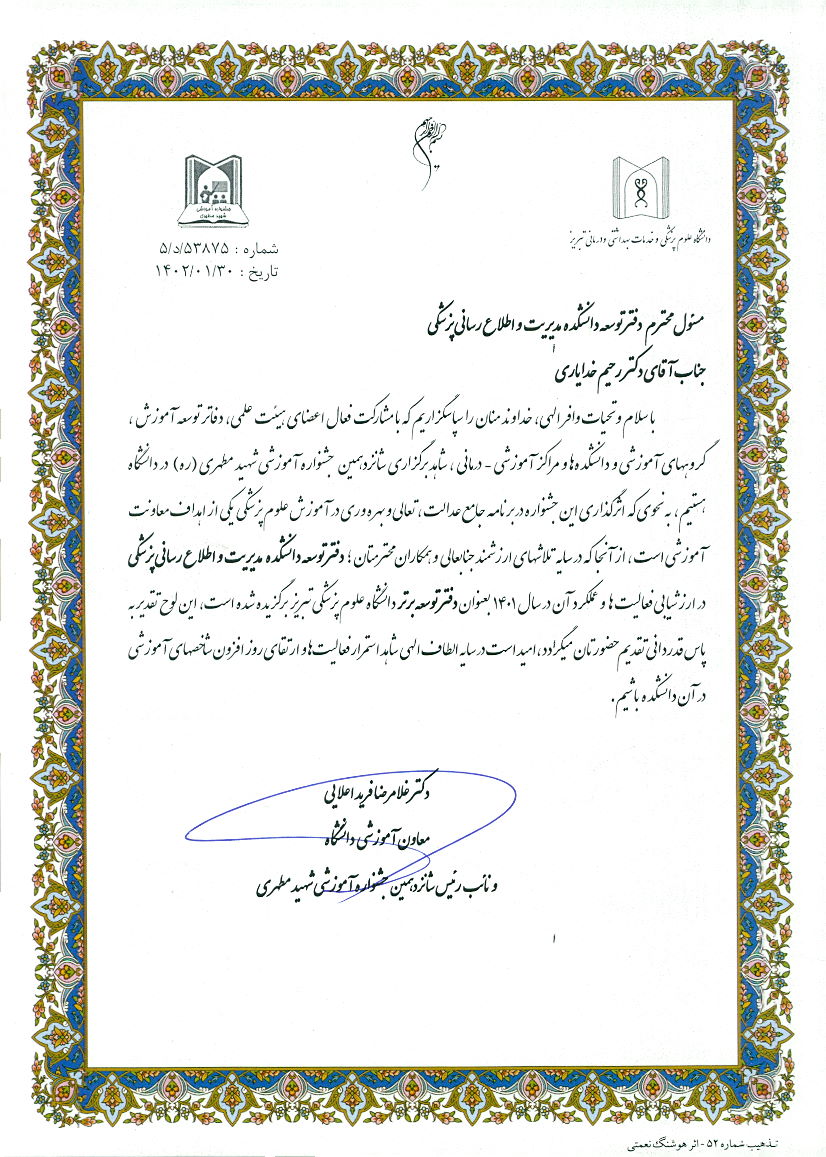 بسم الله الرحمن الرحیم
جشنواره آموزشی
شهید مطهری
دانشگاه علوم پزشکی و خدمات بهداشتی و درمانی تبریز
شماره : ۵/د/۵۳۸۷۵
تاریخ : ۱۴۰۲/۰۱/۳۰
مسئول محترم دفتر توسعه دانشکده مدیریت و اطلاع رسانی پزشکی
جناب آقای دکتر رحیم خدایاری
با سلام و تحیات وافر الهی، خداوند منان را سپاسگزاریم که با مشارکت فعال اعضای هیئت علمی، دفاتر توسعه آموزش ،
گروههای آموزشی و دانشکده ها و مراکز آموزشی - درمانی ، شاهد برگزاری شانزدهمین جشنواره آموزشی شهید مطهری (ره) در دانشگاه
هستیم ، به نحوی که اثرگذاری این جشنواره در برنامه جامع عدالت، تعالی و بهره وری در آموزش علوم پزشکی یکی از اهداف معاونت
آموزشی است ، از آنجا که در سایه تلاشهای ارزشمند جنابعالی و همکاران محترمتان ؛ دفتر توسعه دانشکده مدیریت و اطلاع رسانی پزشکی
در ارزشیابی فعالیت ها و عملکرد آن در سال ۱۴۰۱ بعنوان دفتر توسعه برتر دانشگاه علوم پزشکی تبریز برگزیده شده است، این لوح تقدیر به
پاس قدردانی تقدیم حضورتان میگردد، امید است در سایه الطاف الهی شاهد استمرار فعالیت ها و ارتقای روز افزون شاخصهای آموزشی
در آن دانشکده باشیم .
دکتر غلامرضا فرید اعلایی
معاون آموزشی دانشگاه
و نائب رئیس شانزدهمین جشنواره آموزشی شهید مطهری
۱
تذهیب شماره ۵۲ - اثر هوشنگ نعمتی